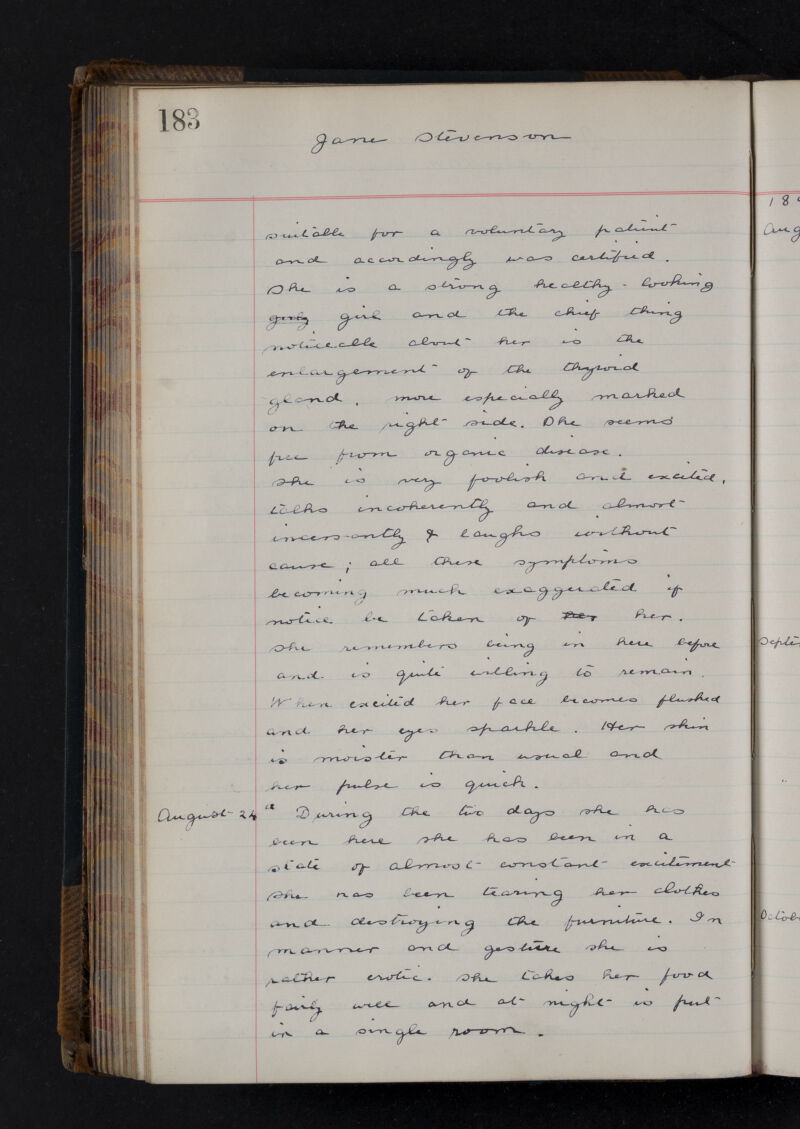 183
Jane Stevenson
suitable for a voluntary patient
and accordingly was certified.
She is a strong healthy-looking
girl and the chief thing
noticeable about her is the
enlargement of the thyroid
gland, more especially marked
on the right side. She seems
free from organic disease.
She is very foolish and excited,
talks incoherently and almost
incessantly & laughs without
cause; all these symptoms
becoming much exaggerated if
notice be taken of her her.
She remembers being in here before
and is quite willing to remain.
When excited her face becomes flushed
and her eyes sparkle. Her skin
is moister than usual and
her pulse is quick.
August 24 " During the two days she has
been here she has been in a
state of almost constant excitement
She has been tearing her clothes
and destroying the furniture. In
manner and gesture she is
rather erotic. She takes her food
fairly well and at night is put
in a single room.
18
Aug
Septe
Octob